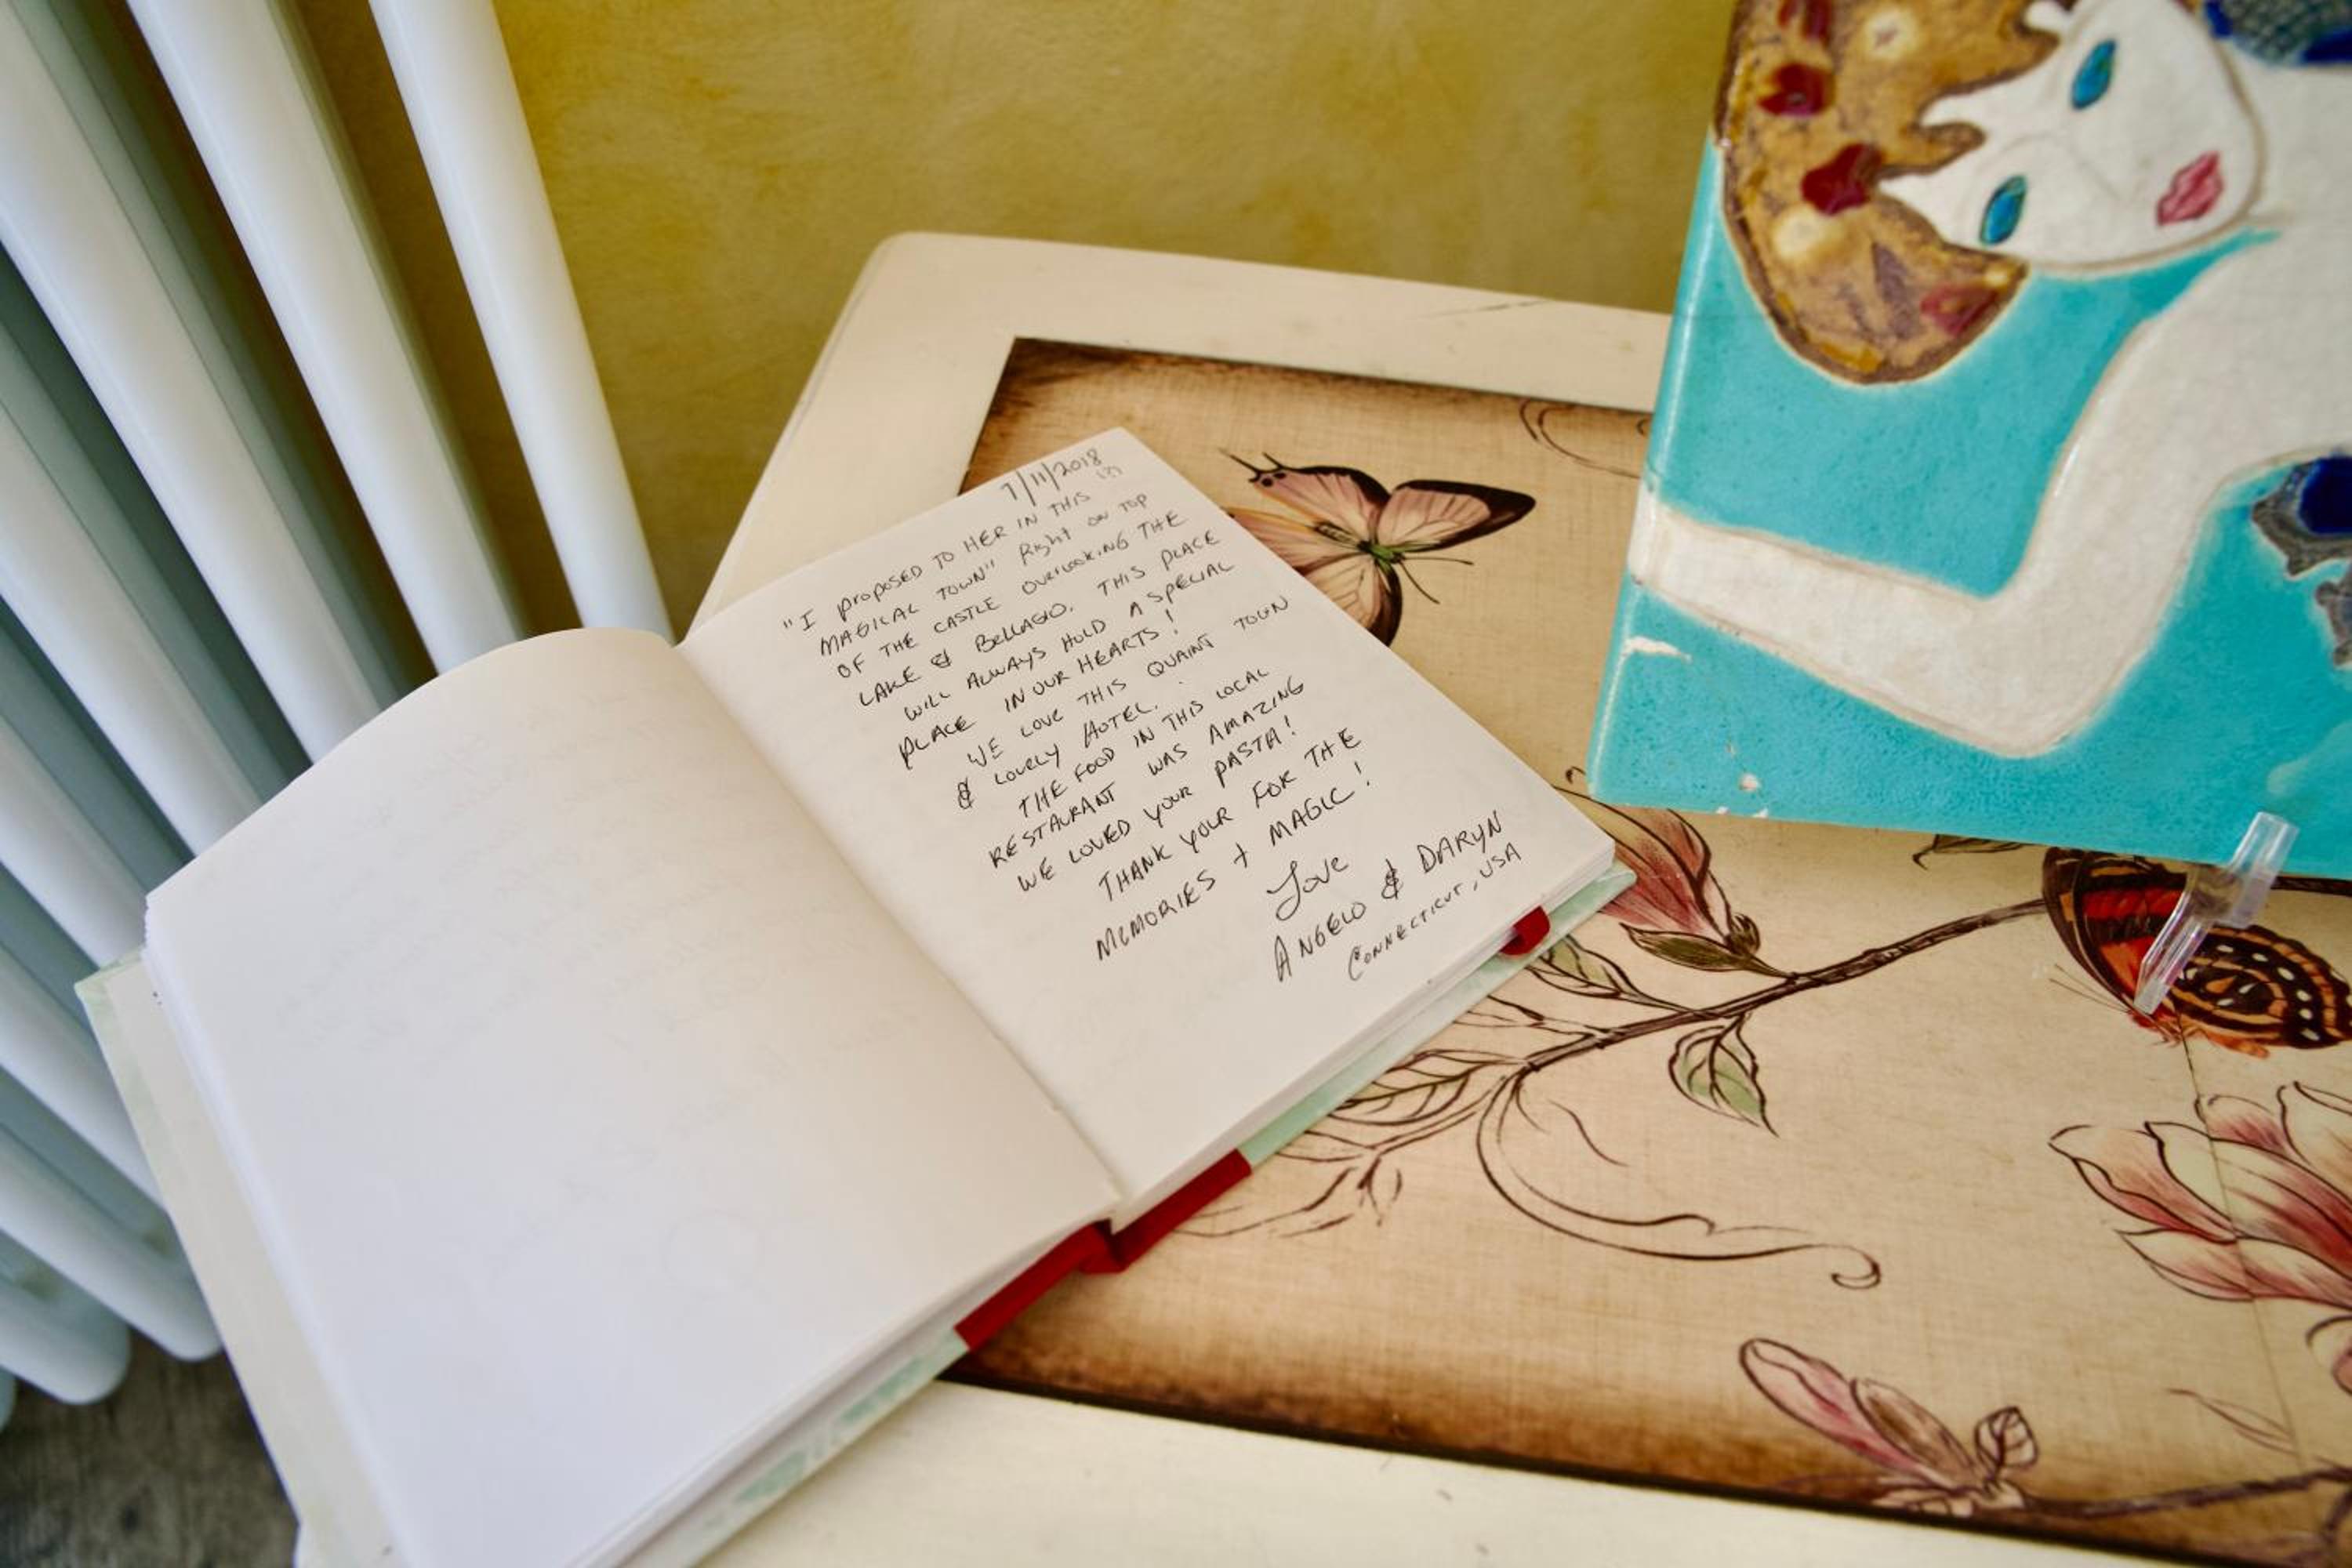 7/11/2018
"I PROPOSED TO HER IN THIS
MAGICAL TOWN" Right ON TOP
OF THE CASTLE OVERLOOKING THE
LAKE & BELLAGIO. THIS PLACE
WILL ALWAYS HOLD A SPECIAL
PLACE IN OUR HEARTS!
WE LOVE THIS QUAINT TOWN
& LOVELY HOTEL.
THE FOOD IN THIS LOCAL
RESTAURANT WAS AMAZING
WE LOVED YOUR PASTA!
THANK YOUR FOR THE
MEMORIES + MAGIC!
Love
ANGELO & DARYN
CONNECTICUT, USA